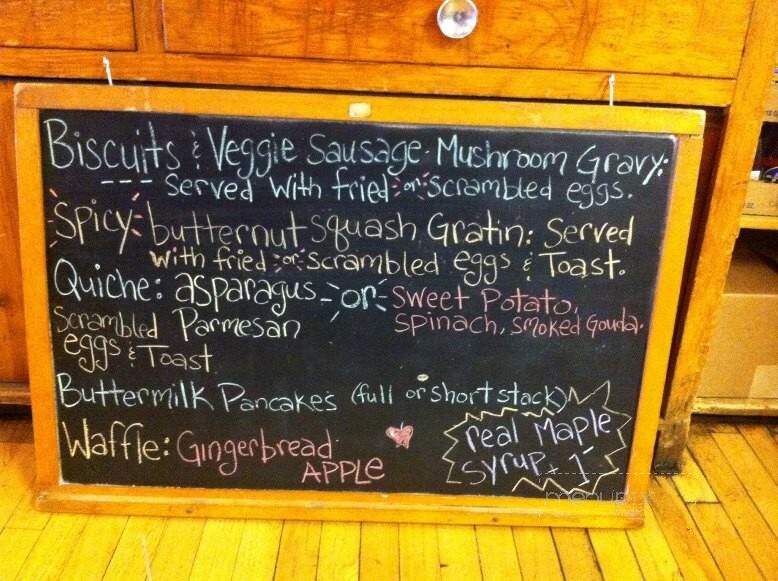 Biscuits & Veggie Sausage-Mushroom Gravy:
--- Served With fried or scrambled eggs.
Spicy butternut Squash Gratin: Served
with fried or scrambled eggs & Toast.
Quiche: asparagus -or- Sweet Potato,
Spinach, Smoked Gouda.
Scrambled Parmesan
eggs & Toast
Buttermilk Pancakes (full or short stack)
Waffle: Gingerbread
APPLe
real Maple
Syrup 1-